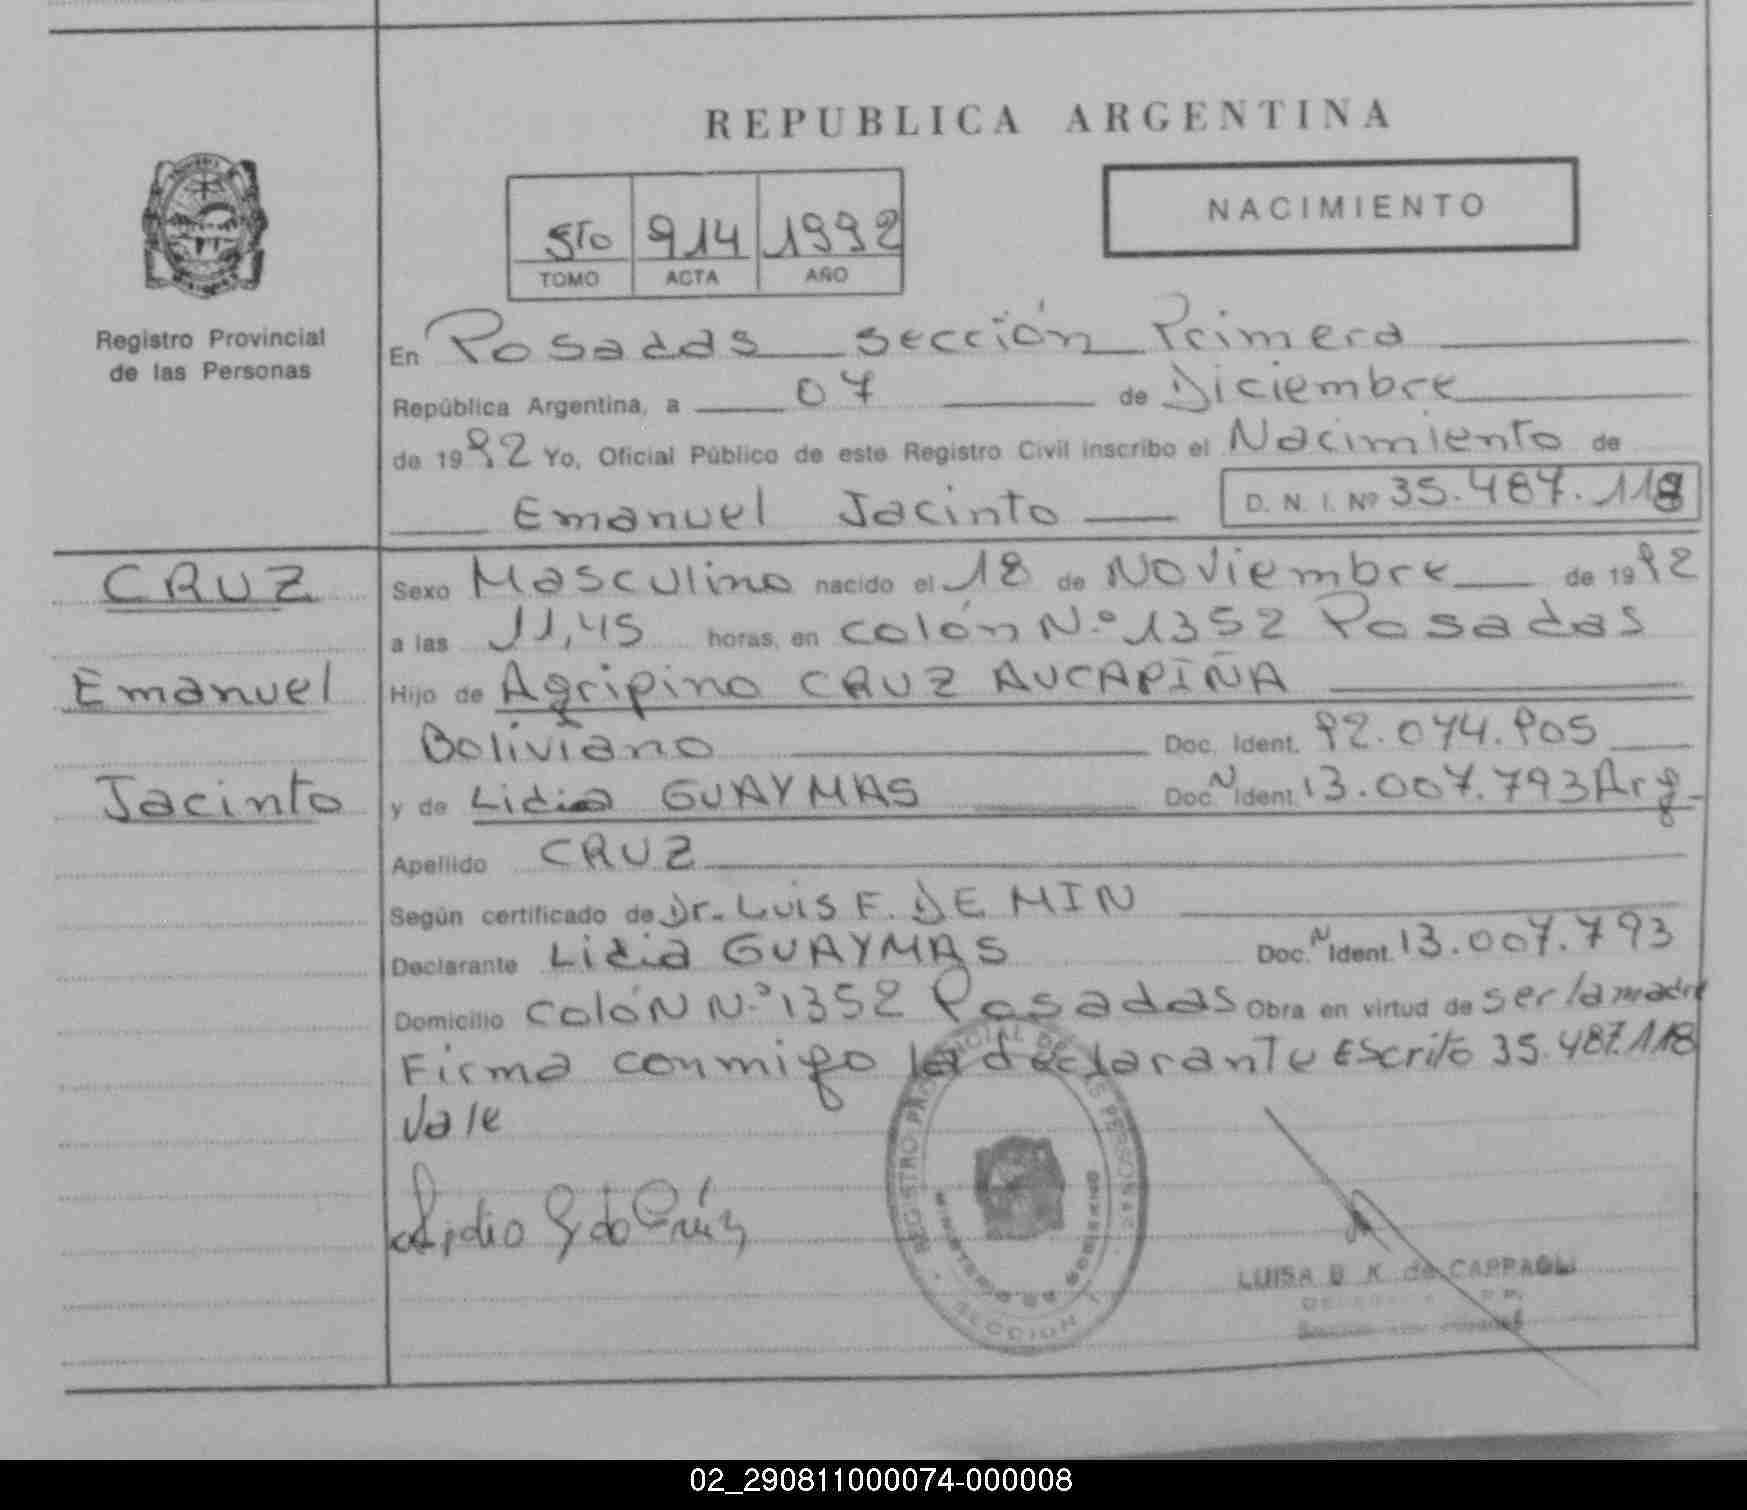 REPUBLICA ARGENTINA
NACIMIENTO
5to 914 1992
TOMO ACTA AÑO
Registro Provincial
de las Personas
En Posadas sección Primera
República Argentina, a 07 de Diciembre
de 1992 Yo, Oficial Público de este Registro Civil inscribo el Nacimiento de
Emanuel Jacinto D. N. I. Nº 35.487.118
CRUZ
Emanuel
Jacinto
Sexo Masculino nacido el 18 de Noviembre de 1992
a las 11,45 horas, en colón N.º 1352 Posadas
Hijo de Agripino CRUZ AUCAPIÑA
Boliviano Doc. Ident. 92.074.905
y de Lidia GUAYMAS Doc. N Ident. 13.007.793 Arg.
Apellido CRUZ
Según certificado de Dr. LUIS F. DE MIN
Declarante Lidia GUAYMAS Doc. N Ident. 13.007.793
Domicilio colóN N.º 1352 Posadas Obra en virtud de ser la madre
Firma conmigo la declarante Escrito 35.487.118
Vale
REGISTRO PROVINCIAL DE LAS PERSONAS
MINISTERIO DE GOBIERNO
SECCION 1
LUISA B K de CAPPAGLI
02_290811000074-000008